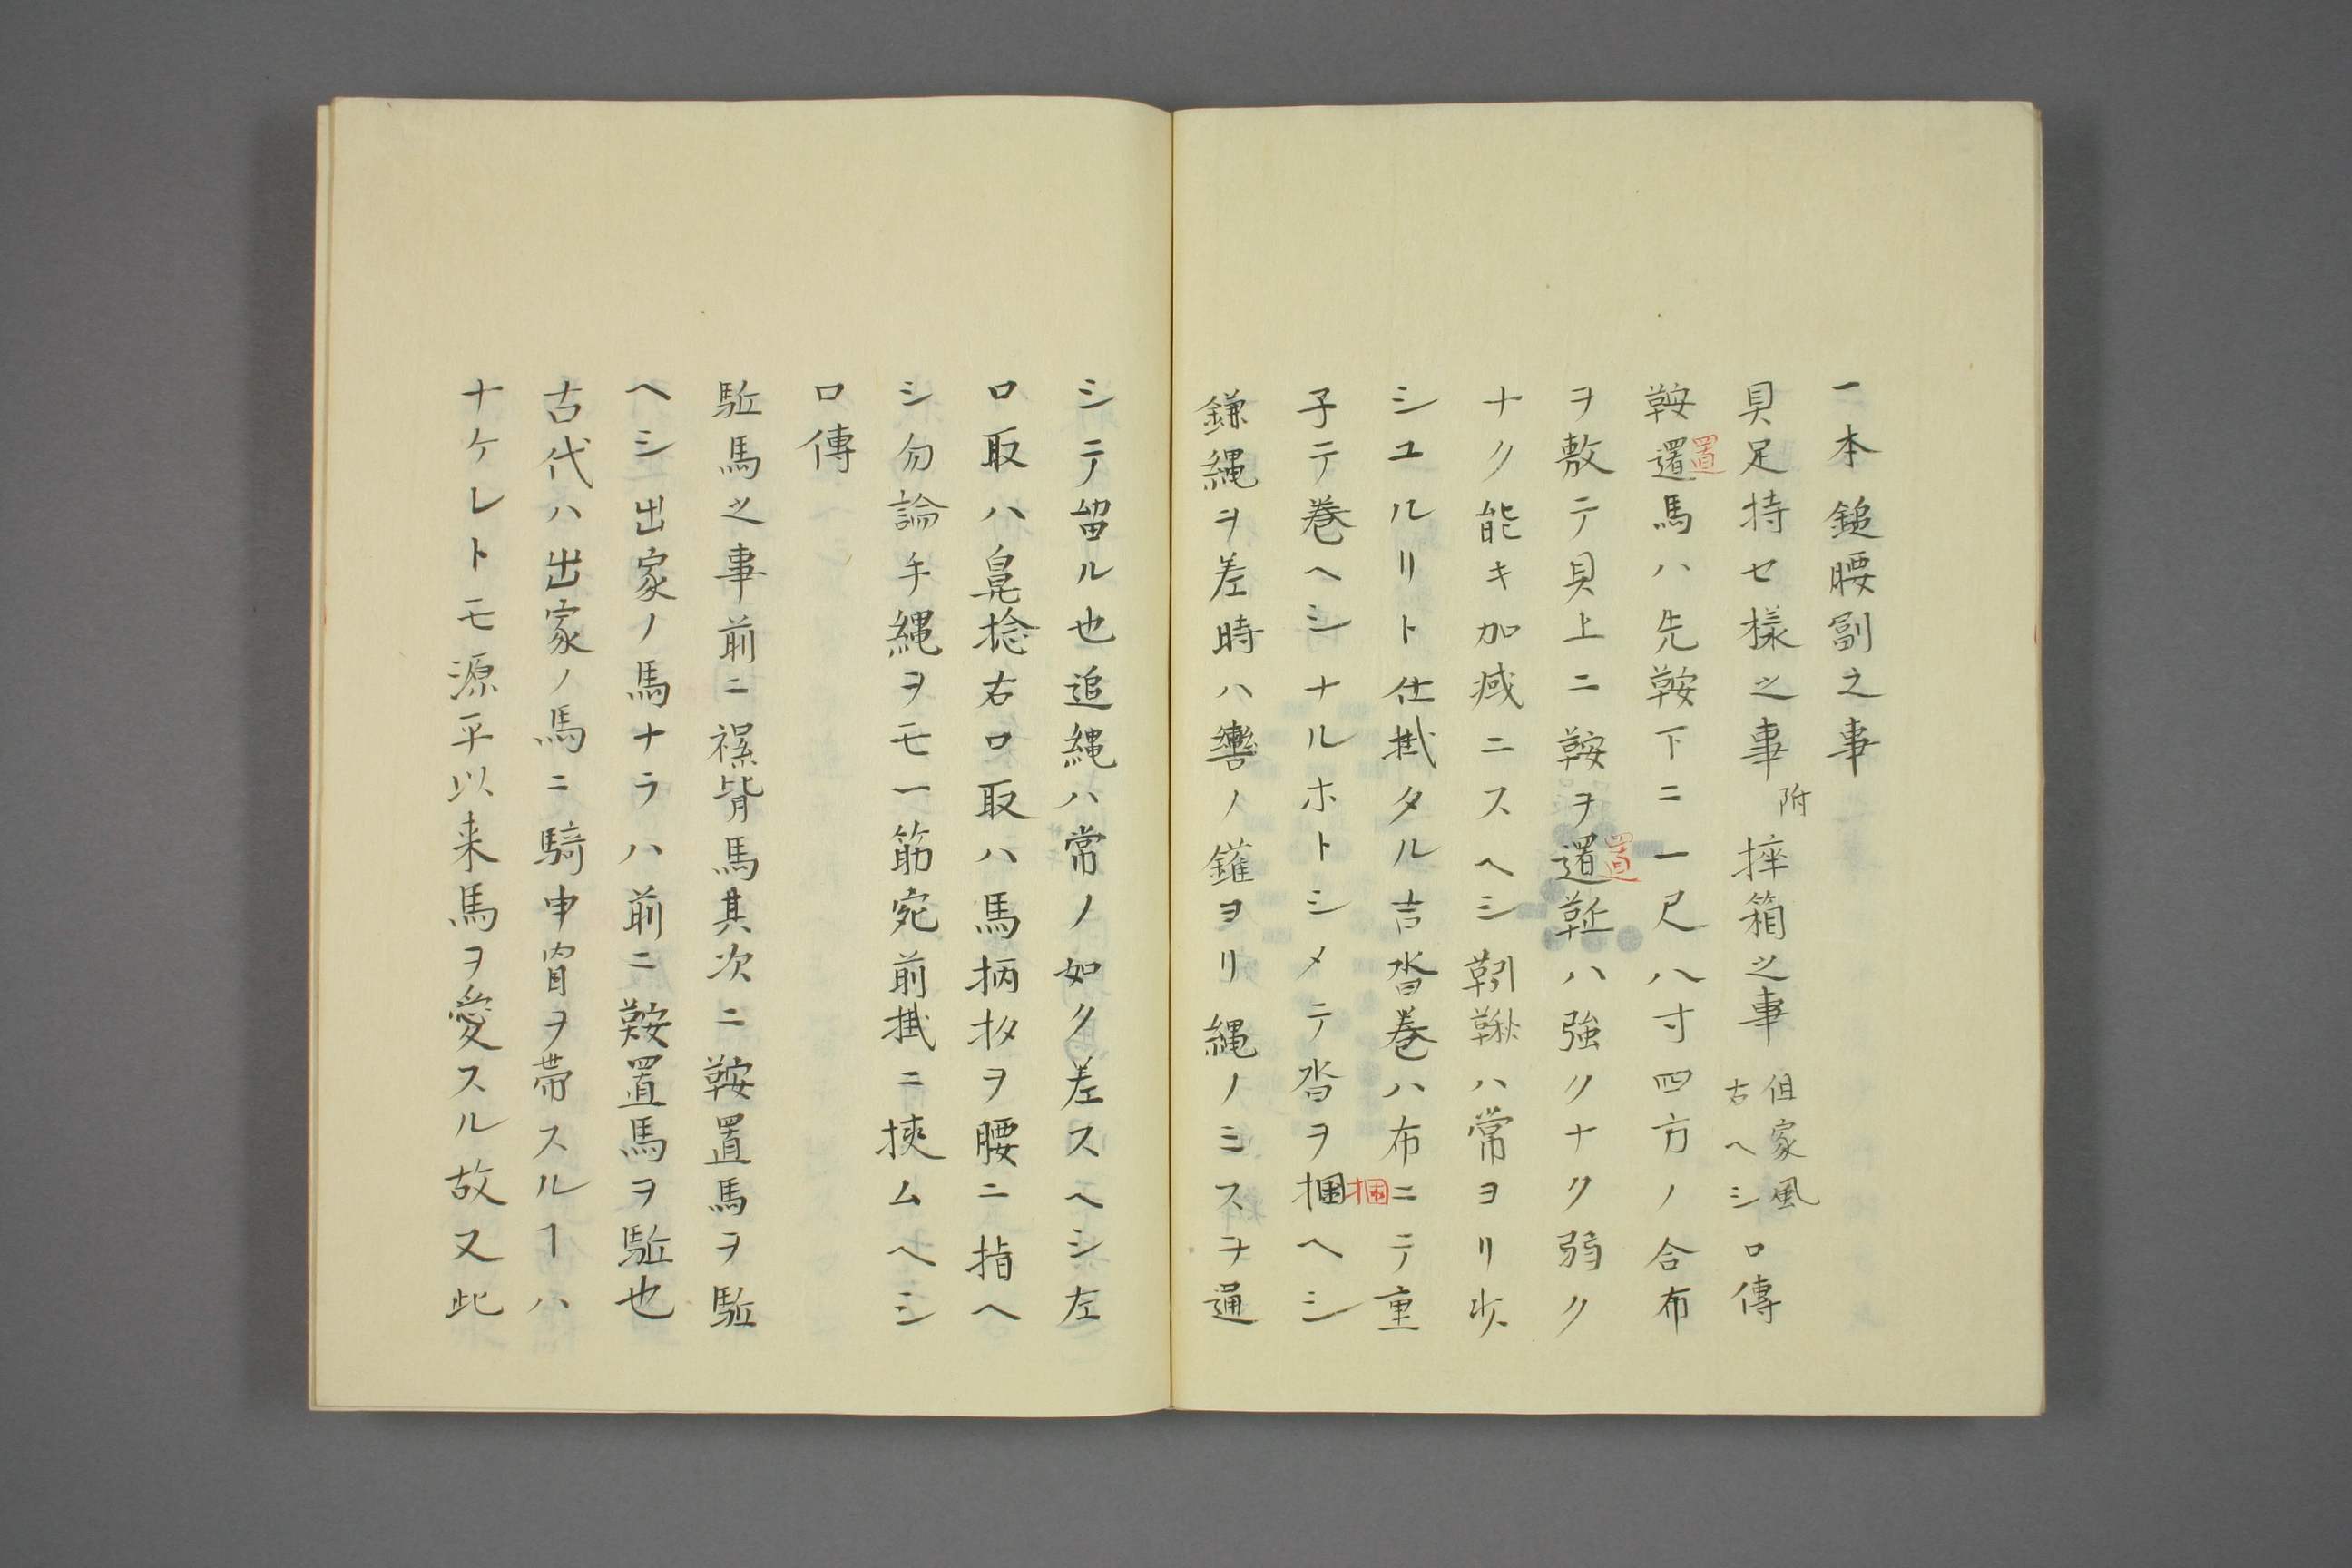 一本鎚腰副之事
貝足持セ様之事 附 捽箱之事 但家風
古ヘシロ傳
鞍還馬ハ先鞍下ニ一尺八寸四方ノ合布
置
ヲ敷テ貝上ニ鞍ヲ還䩛ハ強クナク弱ク
置
ナク能キ加减ニスヘシ靷鞦ハ常ヨリ少
シユルリト仕掛タル吉沓巻ハ布ニテ重
子テ巻ヘシナルホトシメテ沓ヲ捆ヘシ
捆
鎌縄ヲ差時ハ轡ノ鑵ヨリ縄ノミスヲ通
シテ留ル也追縄ハ常ノ如ク差スヘシ左
口取ハ鼻捻右口取ハ馬柄杓ヲ腰ニ指ヘ
シ勿論手縄ヲモ一筋宛前掛ニ挾ムヘシ
口傳
駈馬之事前ニ裸背馬其次ニ鞍置馬ヲ駈
ヘシ出家ノ馬ナラハ前ニ鞍置馬ヲ駈也
古代ハ出家ノ馬ニ騎甲冑ヲ帯スルヿハ
ナケレトモ源平以来馬ヲ愛スル故又此